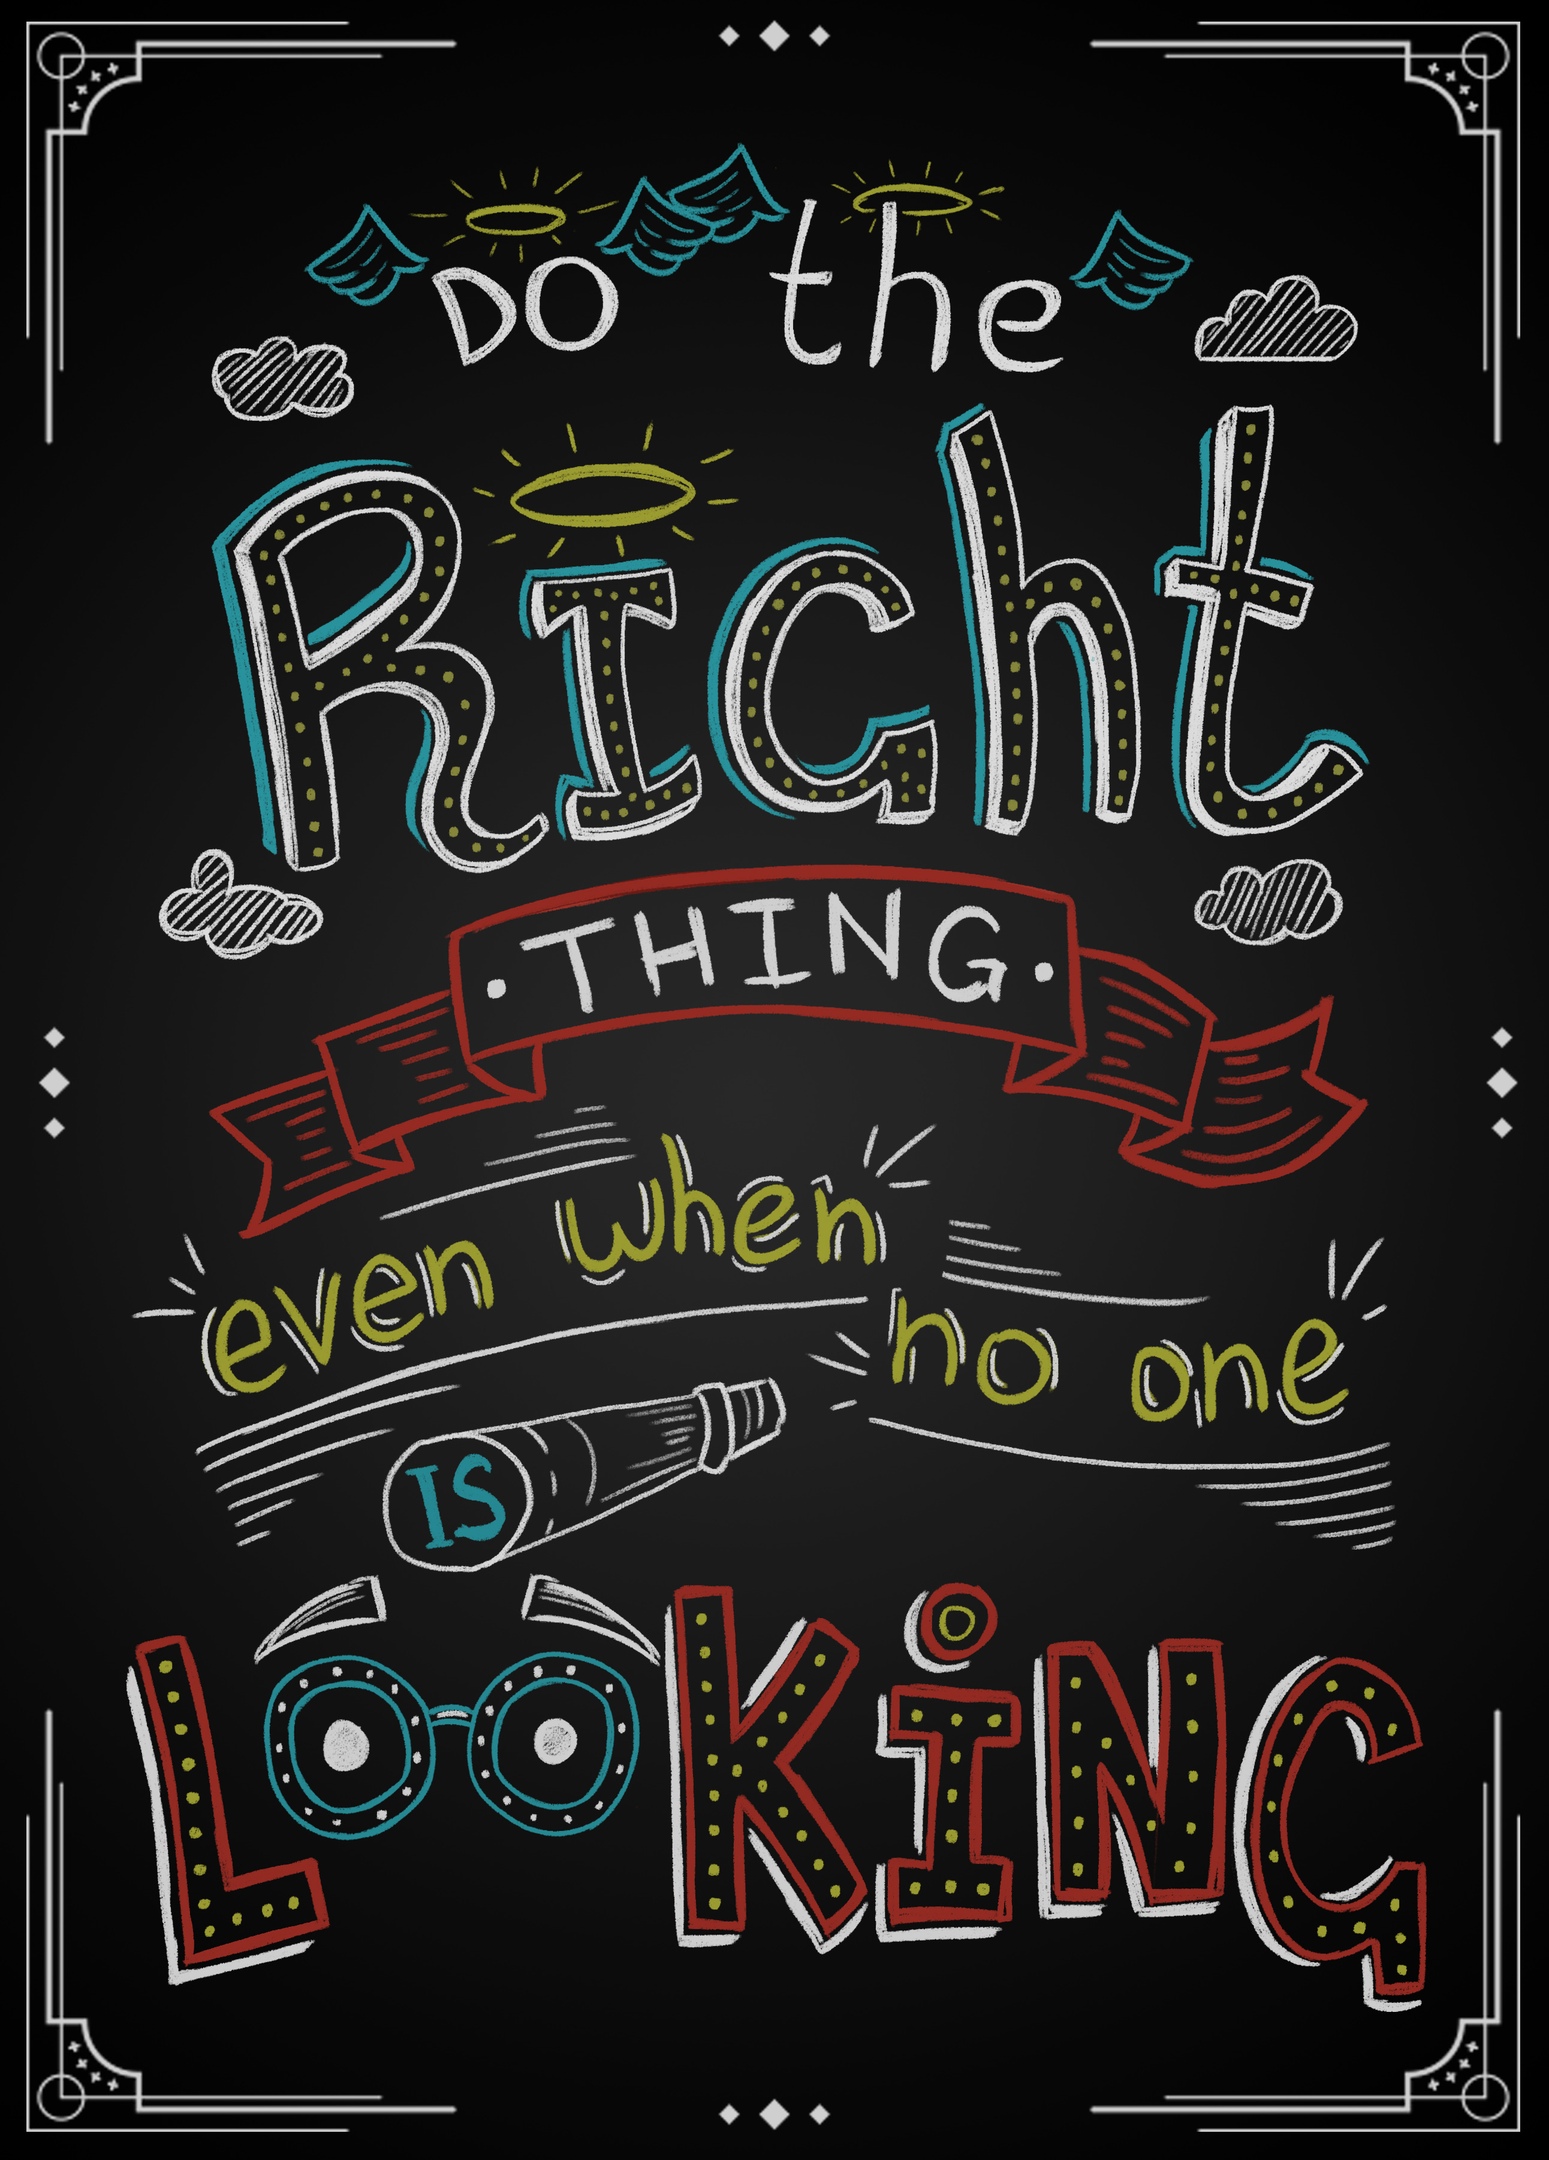 DO the
RIGht
• THING •
even when
no one
IS
LOOKiNG